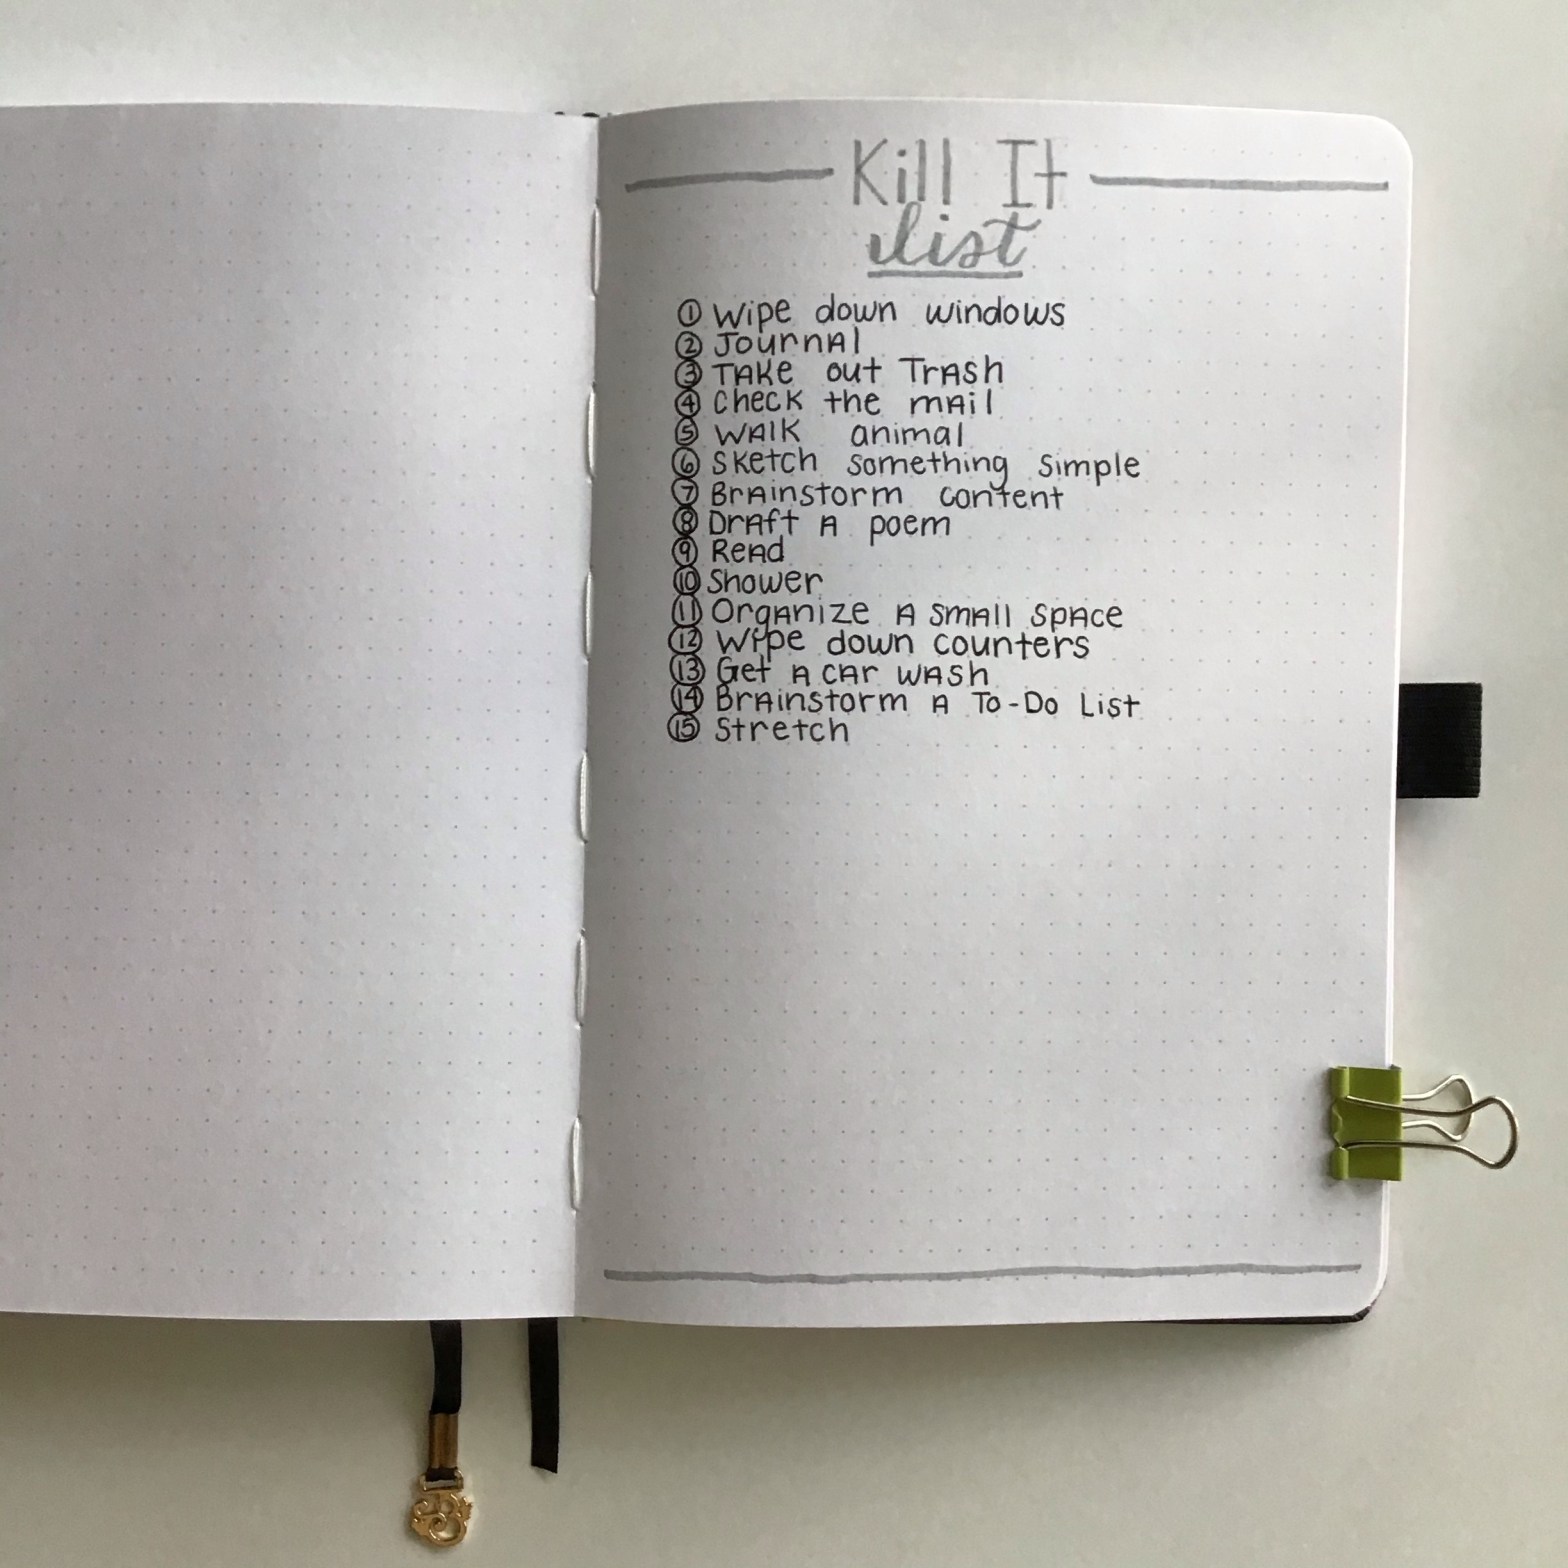 Kill It
list
① Wipe down windows
② Journal
③ Take out Trash
④ Check the mail
⑤ Walk animal
⑥ Sketch something simple
⑦ Brainstorm content
⑧ Draft a poem
⑨ Read
⑩ Shower
⑪ Organize a small space
⑫ Wipe down counters
⑬ Get a car wash
⑭ Brainstorm a To-Do List
⑮ Stretch